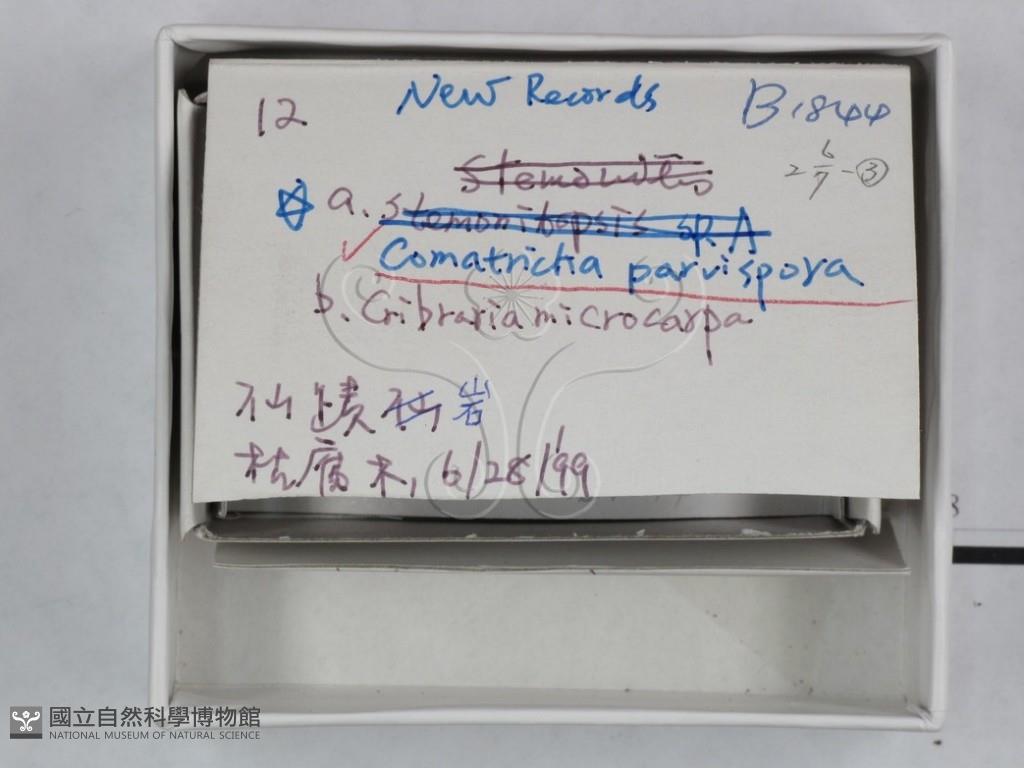 New Records
12
B1844
2 6/7 - ③
Stemonitis
a. stemonitopsis sp. A
Comatrichia parvispora
b. Cribraria microcarpa
仙蹟岩
枯腐木, 6/28/'99
8
國立自然科學博物館
NATIONAL MUSEUM OF NATURAL SCIENCE